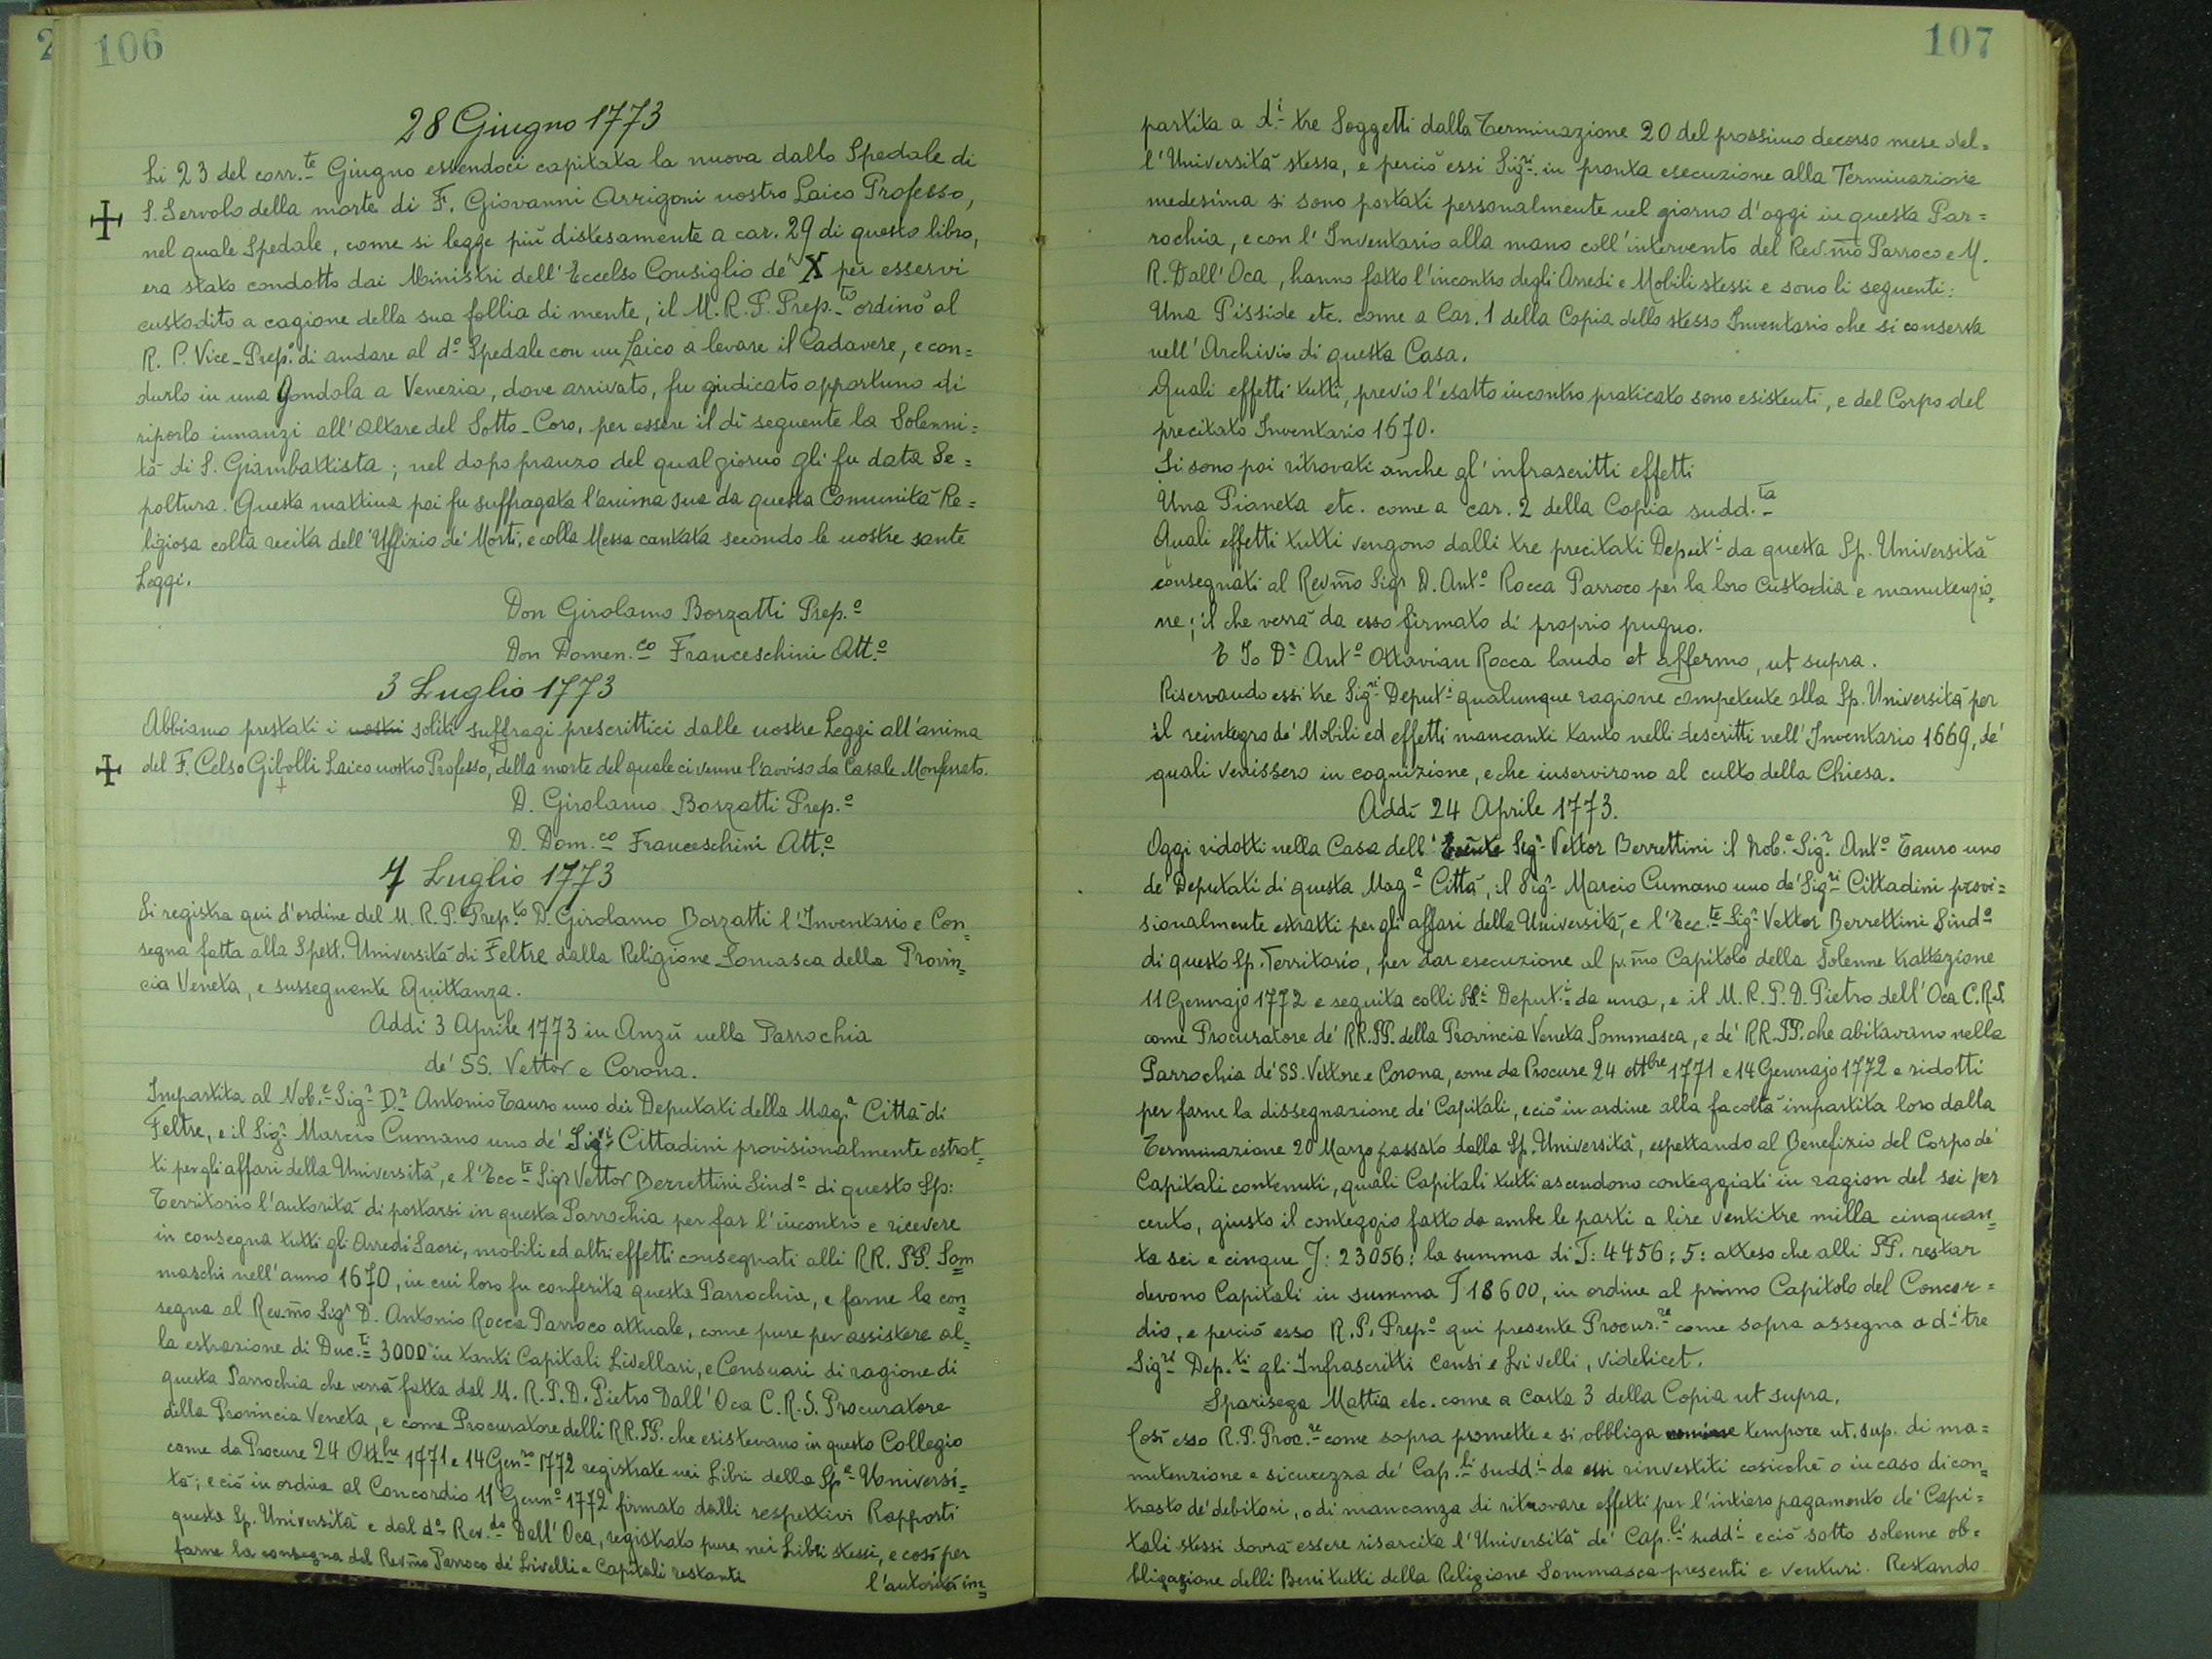 106
28 Giugno 1773
Li 23 del corr.te Giugno essendoci capitata la nuova dallo Spedale di
S. Servolo della morte di F. Giovanni Arrigoni nostro Laico Professo,
nel quale Spedale, come si legge più distesamente a car. 29 di questo libro,
era stato condotto dai Ministri dell'Eccelso Consiglio de' X per esservi
custodito a cagione della sua follia di mente, il M. R. P. Prep.to ordinò al
R. P. Vice-Prep.o di andare al do Spedale con un Laico a levare il Cadavere, e con=
durlo in una Gondola a Venezia, dove arrivato, fu giudicato opportuno di
riporlo innanzi all'Altare del Sotto-Coro, per essere il dì seguente la Solenni=
tà di S. Giambattista; nel dopo pranzo del qual giorno gli fu data Se=
poltura. Questa mattina poi fu suffragata l'anima sua da questa Comunità Re=
ligiosa colla recita dell'Uffizio de' Morti, e colla Messa cantata secondo le nostre sante
Leggi.
Don Girolamo Borzatti Prep.o
Don Domen.co Franceschini Att.o
3 Luglio 1773
Abbiamo prestati i nostri soliti suffragi prescrittici dalle nostre Leggi all'anima
del F. Celso Gibolli Laico nostro Professo, della morte del quale ci venne l'avviso da Casale Monferrato.
D. Girolamo Borzatti Prep.o
D. Dom.co Franceschini Att.o
7 Luglio 1773
Si registra qui d'ordine del M. R. P. Prep.to D. Girolamo Borzatti l'Inventario e Con=
segna fatta alla Spett. Università di Feltre dalla Religione Somasca della Provin=
cia Veneta, e susseguente Quittanza.
Addì 3 Aprile 1773 in Anzù nella Parrochia
de' SS. Vettor e Corona.
Impartita al Nob.e Sigr Dr Antonio Tauro uno dei Deputati della Mag.a Città di
Feltre, e il Sigr Marcio Cumano uno de' Sigri Cittadini provisionalmente estrat=
ti per gli affari della Università, e l'Eccte Sigr Vettor Berrettini Sindo di questo Sp:
Territorio l'autorità di portarsi in questa Parrochia per far l'incontro e ricevere
in consegna tutti gli Arredi Sacri, mobili ed altri effetti consegnati alli RR. PP. Som=
maschi nell'anno 1670, in cui loro fu conferita questa Parrochia, e farne la con=
segna al Rev.mo Sigr D. Antonio Rocca Parroco attuale, come pure per assistere al=
la estrazione di Duc.ti 3000 in tanti Capitali Livellari, e Censuari di ragione di
questa Parrochia che verrà fatta dal M. R. P. D. Pietro Dall'Oca C. R. S. Procuratore
della Provincia Veneta, e come Procuratore delli RR. PP. che esistevano in questo Collegio
come da Procure 24 Ottbre 1771 e 14 Genro 1772 registrate nei Libri della Spe Universi=
tà; e ciò in ordine al Concordio 11 Genno 1772 firmato dalli respettivi Rapporti
questa Sp. Università e dal do Rev.do Dall'Oca, registrato pure nei Libri stessi, e così per
farne la consegna del Revmo Parroco de' Livelli e Capitali restanti l'autorità im=
107
partita a di tre Soggetti dalla Terminazione 20 del prossimo decorso mese del=
l'Università stessa, e perciò essi Sigri in pronta esecuzione alla Terminazione
medesima si sono portati personalmente nel giorno d'oggi in questa Par=
rochia, e con l'Inventario alla mano coll'intervento del Rev.mo Parroco e M.
R. Dall'Oca, hanno fatto l'incontro degli Arredi e Mobili stessi e sono li seguenti:
Una Pisside etc. come a Car. 1 della Copia dello stesso Inventario che si conserva
nell'Archivio di questa Casa.
Quali effetti tutti, previo l'esatto incontro praticato sono esistenti, e del Corpo del
precitato Inventario 1670.
Si sono poi ritrovati anche gl'infrascritti effetti
Una Pianeta etc. come a car. 2 della Copia sudd.ta
Quali effetti tutti vengono dalli tre precitati Deputi da questa Sp. Università
consegnati al Revmo Sigr D. Anto Rocca Parroco per la loro Custodia e manutenzio=
ne; il che verrà da esso firmato di proprio pugno.
E Io Dr Anto Ottavian Rocca laudo et affermo, ut supra.
Riservando essi tre Sigri Deputi qualunque ragione competente alla Sp. Università per
il reintegro de' Mobili ed effetti mancanti tanto nelli descritti nell'Inventario 1669, de'
quali venissero in cognizione, e che inservirono al culto della Chiesa.
Addì 24 Aprile 1773.
Oggi ridotti nella Casa dell' Sigr Vettor Berrettini il Nob.e Sigr Anto Tauro uno
de' Deputati di questa Maga Città, il Sigr Marcio Cumano uno de' Sigri Cittadini provi=
sionalmente estratti per gli affari della Università, e l'Ecc.te Sigr Vettor Berrettini Sindo
di questo Sp. Territorio, per dar esecuzione al pmo Capitolo della Solenne trattazione
11 Gennajo 1772 e seguita colli SSi Deputi da una, e il M. R. P. D. Pietro dell'Oca C. R. S.
come Procuratore de' RR. PP. della Provincia Veneta Sommasca, e de' RR. PP. che abitavano nella
Parrochia de' SS. Vettore e Corona, come da Procure 24 ottbre 1771 e 14 Gennajo 1772 e ridotti
per farne la dissegnazione de' Capitali, e ciò in ordine alla facoltà impartita loro dalla
Terminazione 20 Marzo passato dalla Sp. Università, espettando al Benefizio del Corpo de'
Capitali contenuti, quali Capitali tutti ascendono conteggiati in ragion del sei per
cento, giusto il conteggio fatto da ambe le parti a lire ventitre milla cinquan=
ta sei e cinque T: 23056: la summa di T: 4456: 5: atteso che alli PP. restar
devono Capitali in summa T 18600, in ordine al primo Capitolo del Concor=
dio, e perciò esso R. P. Prepo qui presente Procur.re come sopra assegna a di tre
Sigri Dep.ti gli Infrascritti Censi e Livelli, videlicet.
Sparisega Mattia etc. come a Carta 3 della Copia ut supra.
Così esso R. P. Proc.re come sopra promette e si obbliga tempore ut. sup. di ma=
nutenzione e sicurezza de' Cap.li suddi da essi rinvestiti cosicchè o in caso di con=
trasto de' debitori, o di mancanza di ritrovare effetti per l'intiero pagamento de' Capi=
tali stessi dovrà essere risarcita l'Università de' Cap.li suddi e ciò sotto solenne ob=
bligazione delli Beni tutti della Religione Sommasca presenti e venturi. Restando